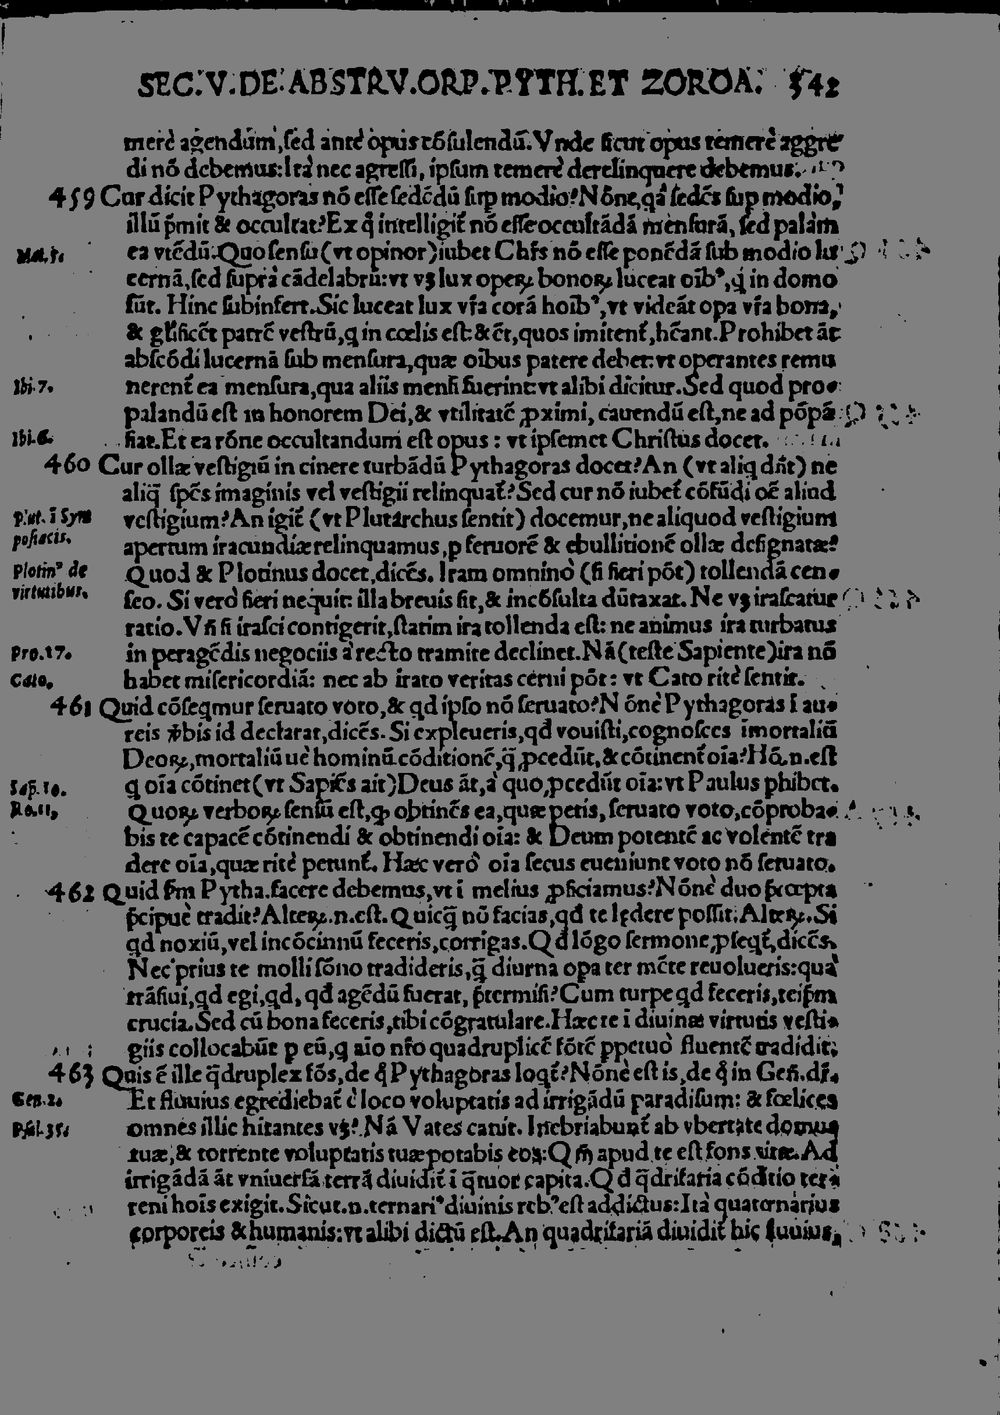 SEC. V. DE. ABSTRV. ORP. PYTH. ET ZOROA. 542
merè agendum, sed ante opus cõsulendũ. Vnde sicut opus temerè aggre
di nõ debemus: Ita nec agressi, ipsum temerè derelinquere debemus.
459 Cur dicit Pythagoras nõ esse sedẽdũ sup modio? Nõne, qa sedẽs sup modio,
illũ p̃mit & occultat? Ex q̃ intelligit nõ esse occultãdã mensurã, sed palàm
Mat. 5. ea vtẽdũ. Quo sensu (vt opinor) iubet Chr̃s nõ esse ponẽdã sub modio lu
cernã, sed supra cãdelabrũ: vt vꝫ lux operꝝ bonorꝝ luceat oĩbꝰ, q̃ in domo
sũt. Hinc subinfert. Sic luceat lux vr̃a corã hoĩbꝰ, vt videãt opa vr̃a bona,
& gl̃ificẽt patrẽ vestrũ, q in cœlis est: & ẽt, quos imitent̃, hẽant. Prohibet ãt
abscõdi lucernã sub mensura, quæ oĩbus patere debet: vt operantes remu
Ibi. 7. nerent̃ ea mensura, qua aliis mensi fuerint: vt alibi dicitur. Sed quod pro-
palandũ est in honorem Dei, & vtilitatẽ ꝓximi, cauendũ est, ne ad põpã
Ibi. 6. fiat. Et ea rõne occultandum est opus: vt ipsemet Christus docet.
460 Cur ollæ vestigiũ in cinere turbãdũ Pythagoras docet? An (vt aliq dñt) ne
aliq̃ spẽs imaginis vel vestigii relinquat̃? Sed cur nõ iubet cõfũdi oẽ aliud
Plut. ĩ Sym vestigium? An igit̃ (vt Plutarchus sentit) docemur, ne aliquod vestigium
posiacis. apertum iracundiæ relinquamus, p feruorẽ & ebullitionẽ ollæ designatæ?
Plotinꝰ de Quod & Plotinus docet, dicẽs. Iram omnino (si fieri põt) tollendã cen-
virtutibus. seo. Si verò fieri nequit: illa breuis sit, & incõsulta dũtaxat. Ne vꝫ irascatur
ratio. Vñ si irasci contigerit, statim ira tollenda est: ne animus ira turbatus
Pro. 27. in peragẽdis negociis à recto tramite declinet. Nã (teste Sapiente) ira nõ
Cato. habet misericordiã: nec ab irato veritas cerni põt: vt Cato ritè sentit.
461 Quid cõseqmur seruato voto, & qd ipso nõ seruato? Nõnè Pythagoras ĩ au-
reis ṽbis id declarat, dicẽs. Si expleueris, qd vouisti, cognosces ĩmortaliũ
Deorꝝ, mortaliũ uè hominũ cõditionẽ, q̃ ꝓcedũt, & cõtinent̃ oĩa? Hõ. n. est
Sap. 10. q oĩa cõtinet (vt Sapiẽs ait) Deus ãt, à quo, ꝓcedũt oĩa: vt Paulus phibet.
Ro. 11, Quorꝝ verborꝝ sensũ est, qꝫ obtinẽs ea, quæ petis, seruato voto, cõproba-
bis te capacẽ cõtinendi & obtinendi oĩa: & Deum potentẽ ac volentẽ tra
dere oĩa, quæ ritè petunt̃. Hæc verò oĩa secus eueniunt voto nõ seruato.
462 Quid s̃m Pytha. facere debemus, vt ĩ melius ꝓficiamus? Nõnè duo p̃cepta
p̃cipuè tradit? Alterꝝ. n. est. Quicq̃ nõ facias, qd te lędere possit. Alterꝝ. Si
qd noxiũ, vel incõcinnũ feceris, corrigas. Qd lõgo sermone, ꝓseqt̃, dicẽs.
Nec prius te molli sõno tradideris, q̃ diurna opa ter mẽte reuolueris: quà
trãsiui, qd egi, qd, qd agẽdũ fuerat, p̃termisi? Cum turpe qd feceris, teip̃m
crucia. Sed cũ bona feceris, tibi cõgratulare. Hæc te ĩ diuinæ virtutis vesti-
giis collocabũt p eũ, q aĩo nr̃o quadruplicẽ fõtẽ ppetuò fluentẽ tradidit.
463 Quis ẽ ille q̃druplex fõs, de q̃ Pythagoras loqt̃? Nõnè est is, de q̃ in Geñ. dr̃.
Gen. 2. Et fluuius egrediebat̃ è loco voluptatis ad irrigãdũ paradisum: & fœlices
Psal. 35. omnes illic hitantes vꝫ? Nã Vates canit. Inebriabunt̃ ab vbertate domus
tuæ, & torrente voluptatis tuæ potabis eos: Qm̃ apud te est fons vitæ. Ad
irrigãdã ãt vniuersã terrã diuidit̃ ĩ q̃tuor capita. Qd q̃drifaria cõditio ter-
reni hoĩs exigit. Sicut. n. ternariꝰ diuinis rebꝰ est addictus: Ità quaternarius
corporeis & humanis: vt alibi dictũ est. An quadrifariã diuidit̃ hic fluuius,